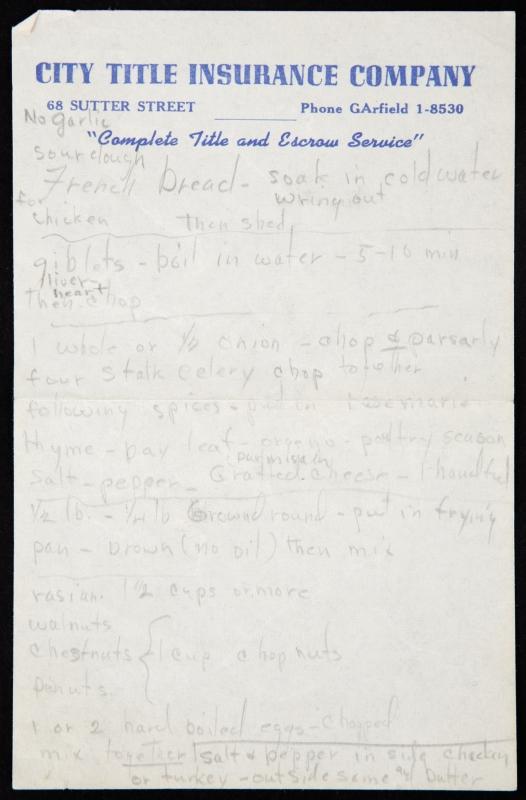 CITY TITLE INSURANCE COMPANY
68 SUTTER STREET Phone GArfield 1-8530
"Complete Title and Escrow Service"
No Garlic
sourdough
French bread - soak in cold water
for wring out
chicken then shed
giblets - boil in water - 5-10 min
liver -
heart
then chop
1 whole or 1/2 onion - chop & parsarly
four stalk celery chop together
following spices - put in
thyme - bay leaf - oregno - poultry season
parmisian
salt - pepper - Gratted cheese - 1 handful
1/2 lb. - 1/4 lb Ground round - put in frying
pan - brown (no oil) then mix
rasian. 1 1/2 cups or more
walnuts
chestnuts { 1 cup chop nuts
panuts.
1 or 2 hard boiled eggs - chopped
mix together salt & pepper in side chicken
or turkey - outside same & butter